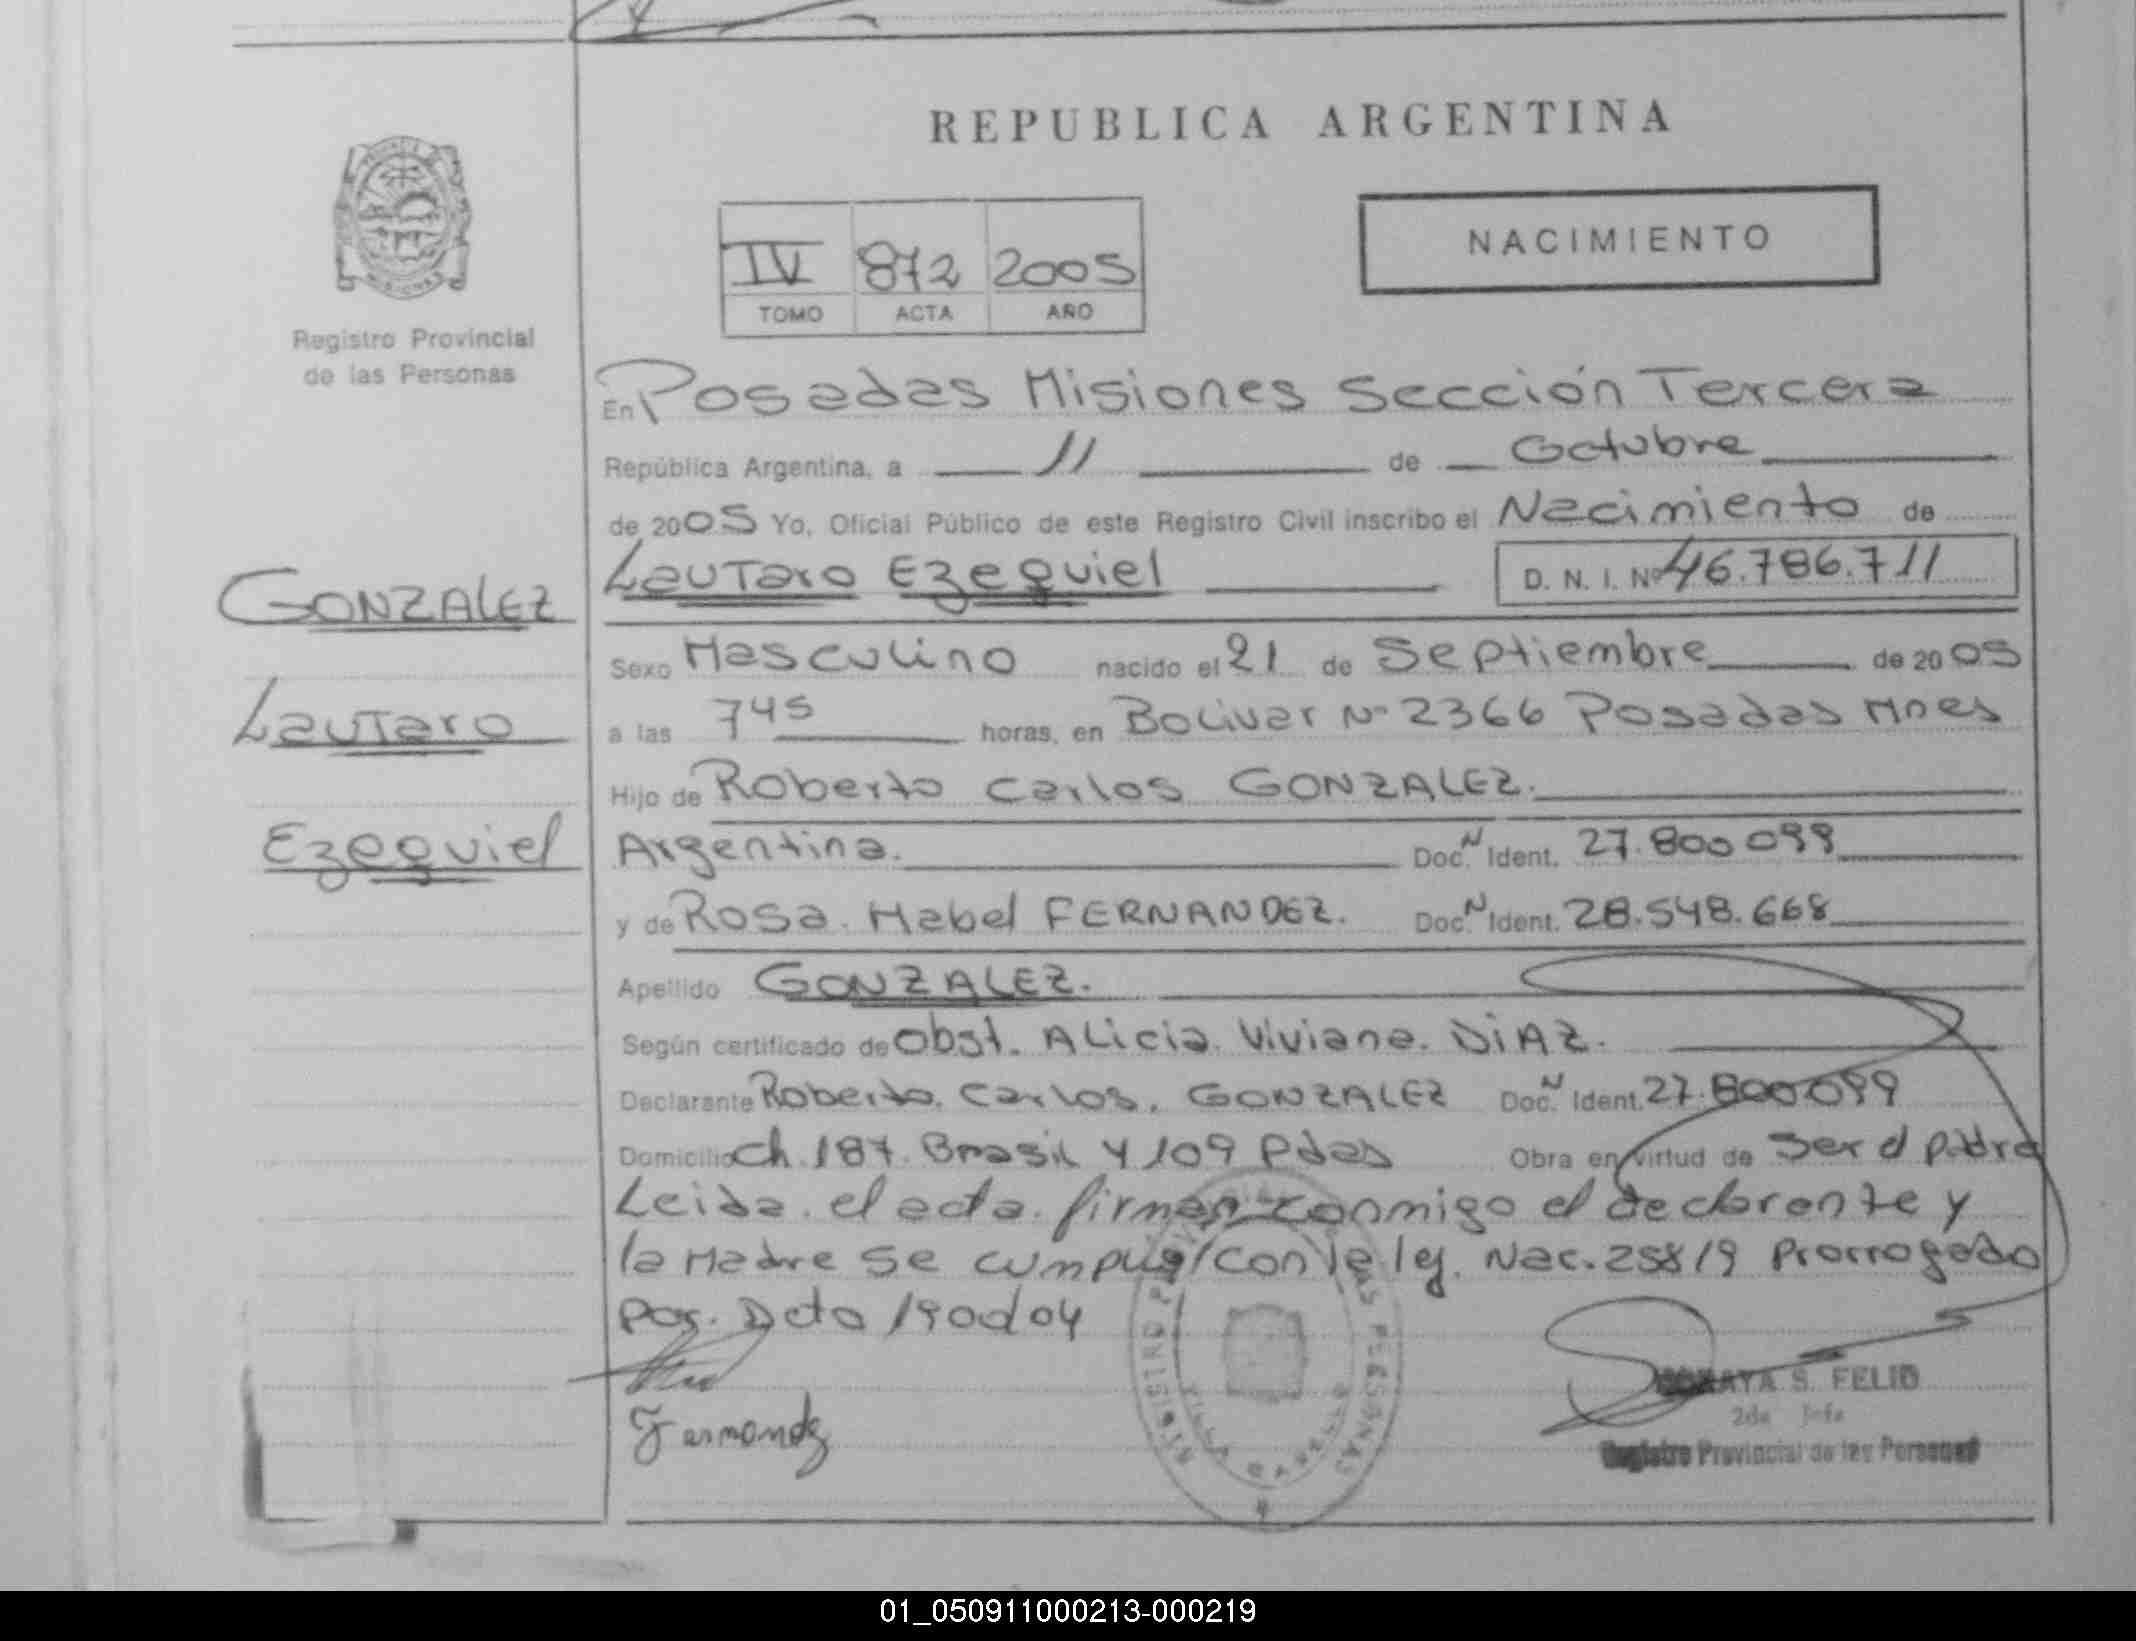 REPUBLICA ARGENTINA
NACIMIENTO
IV 872 2005
TOMO ACTA AÑO
Registro Provincial
de las Personas
En Posadas Misiones Sección Tercera
República Argentina, a 11 de Octubre
de 2005 Yo, Oficial Público de este Registro Civil inscribo el Nacimiento de
Lautaro Ezequiel D. N. I. Nº 46.786.711
GONZALEZ
Lautaro
Ezequiel
Sexo Masculino nacido el 21 de Septiembre de 2005
a las 745 horas, en Bolivar Nº 2366 Posadas Mnes
Hijo de Roberto Carlos GONZALEZ.
Argentina. Doc. N Ident. 27.800 099
y de Rosa. Mabel FERNANDEZ. Doc. N Ident. 28.548.668
Apellido GONZALEZ.
Según certificado de Obst. Alicia. Viviana. DIAZ.
Declarante Roberto. Carlos. GONZALEZ Doc. N Ident. 27.800 099
Domicilio Ch. 187. Brasil y 109 Pdas Obra en virtud de ser el padre
Leida. el acta. firman conmigo el declarante y
la Madre se cumplió con la ley. Nac. 25819 Prorrogado
por. Dcto
Fernandez
SORAYA S. FELID
2da Jefa
Registro Provincial de las Personas
REGISTRO PROVINCIAL DE LAS PERSONAS
01_050911000213-000219